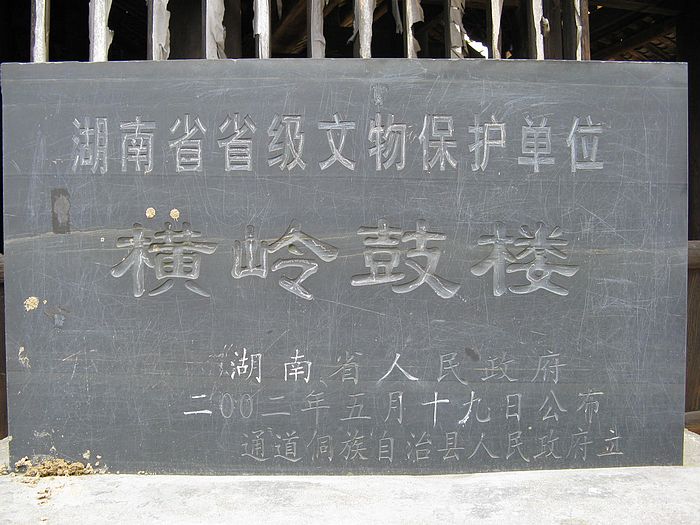 湖南省省级文物保护单位
横岭鼓楼
湖南省人民政府
二00二年五月十九日公布
通道侗族自治县人民政府立